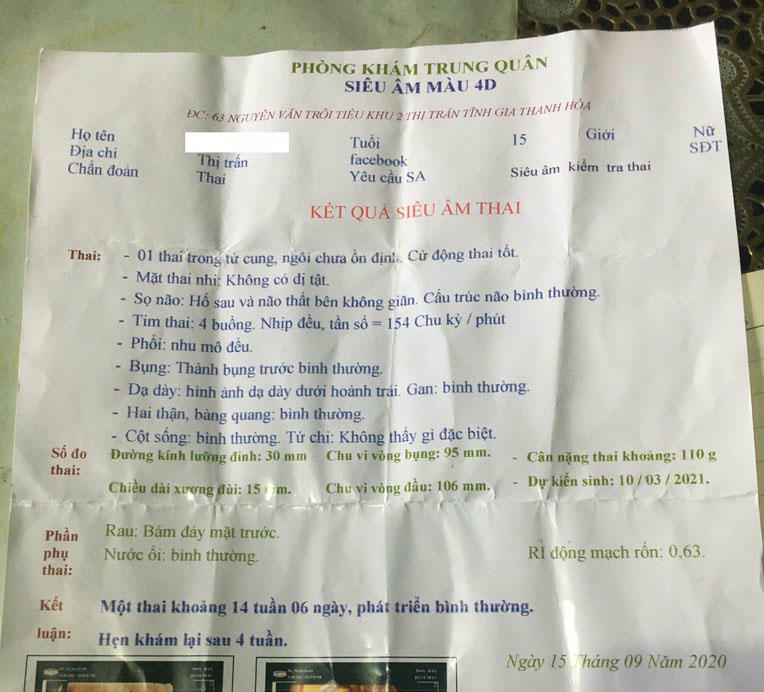 PHÒNG KHÁM TRUNG QUÂN
SIÊU ÂM MÀU 4D
ĐC: 63 NGUYỄN VĂN TRỖI TIỂU KHU 2 THỊ TRẤN TĨNH GIA THANH HÓA
Họ tên Tuổi 15 Giới Nữ
Địa chỉ Thị trấn facebook SĐT
Chẩn đoán Thai Yêu cầu SA Siêu âm kiểm tra thai
KẾT QUẢ SIÊU ÂM THAI
Thai: - 01 thai trong tử cung, ngôi chưa ổn định. Cử động thai tốt.
- Mặt thai nhi: Không có dị tật.
- Sọ não: Hố sau và não thất bên không giãn. Cấu trúc não bình thường.
- Tim thai: 4 buồng. Nhịp đều, tần số = 154 Chu kỳ / phút
- Phổi: nhu mô đều.
- Bụng: Thành bụng trước bình thường.
- Dạ dày: hình ảnh dạ dày dưới hoành trái. Gan: bình thường.
- Hai thận, bàng quang: bình thường.
- Cột sống: bình thường. Tứ chi: Không thấy gì đặc biệt.
Số đo thai: Đường kính lưỡng đỉnh: 30 mm Chu vi vòng bụng: 95 mm. - Cân nặng thai khoảng: 110 g
Chiều dài xương đùi: 15 Chu vi vòng đầu: 106 mm. - Dự kiến sinh: 10 / 03 / 2021.
Phần phụ thai: Rau: Bám đáy mặt trước.
Nước ối: bình thường. RI động mạch rốn: 0,63.
Kết luận: Một thai khoảng 14 tuần 06 ngày, phát triển bình thường.
Hẹn khám lại sau 4 tuần.
Ngày 15 Tháng 09 Năm 2020